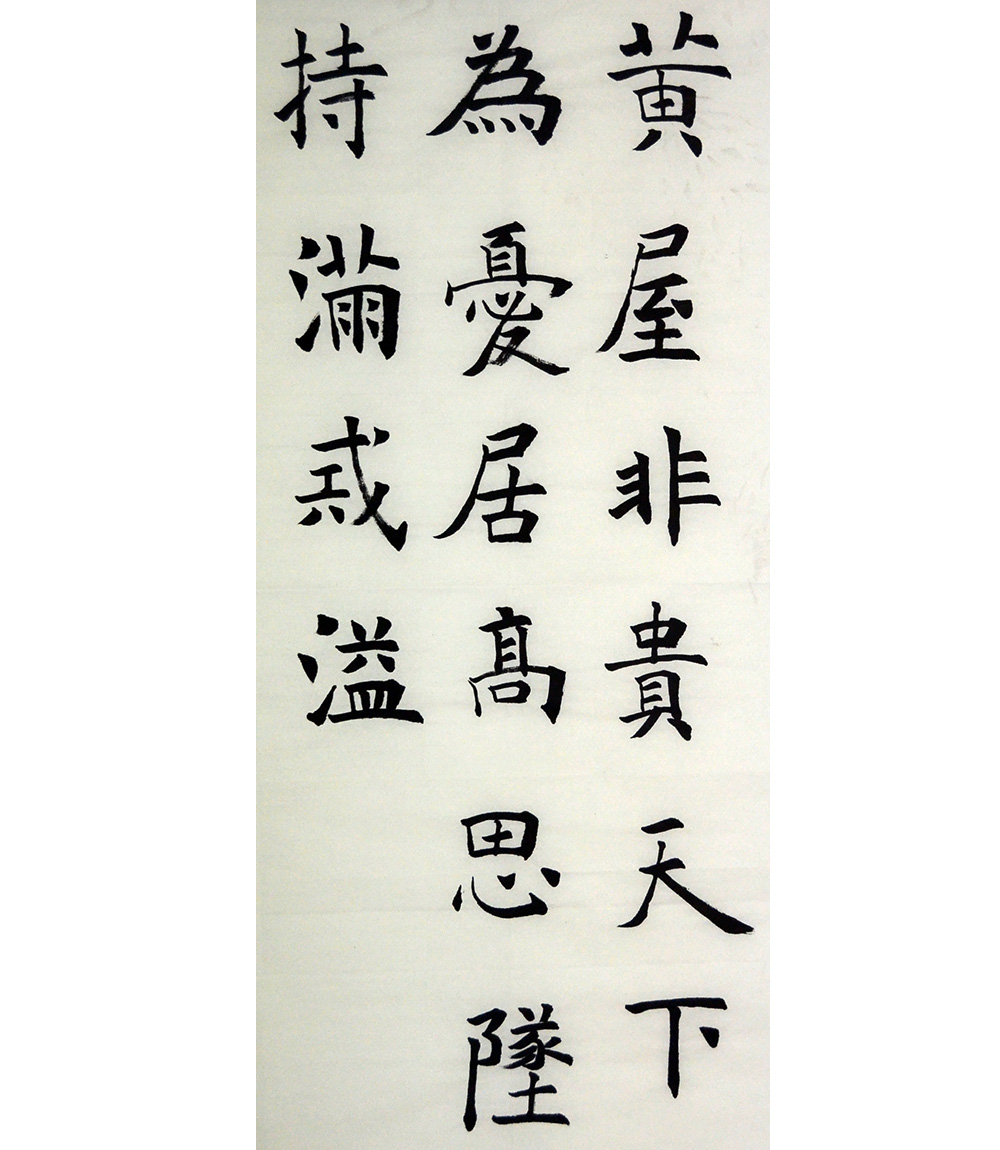 黄屋非貴天下
為憂居高思墜
持滿戒溢